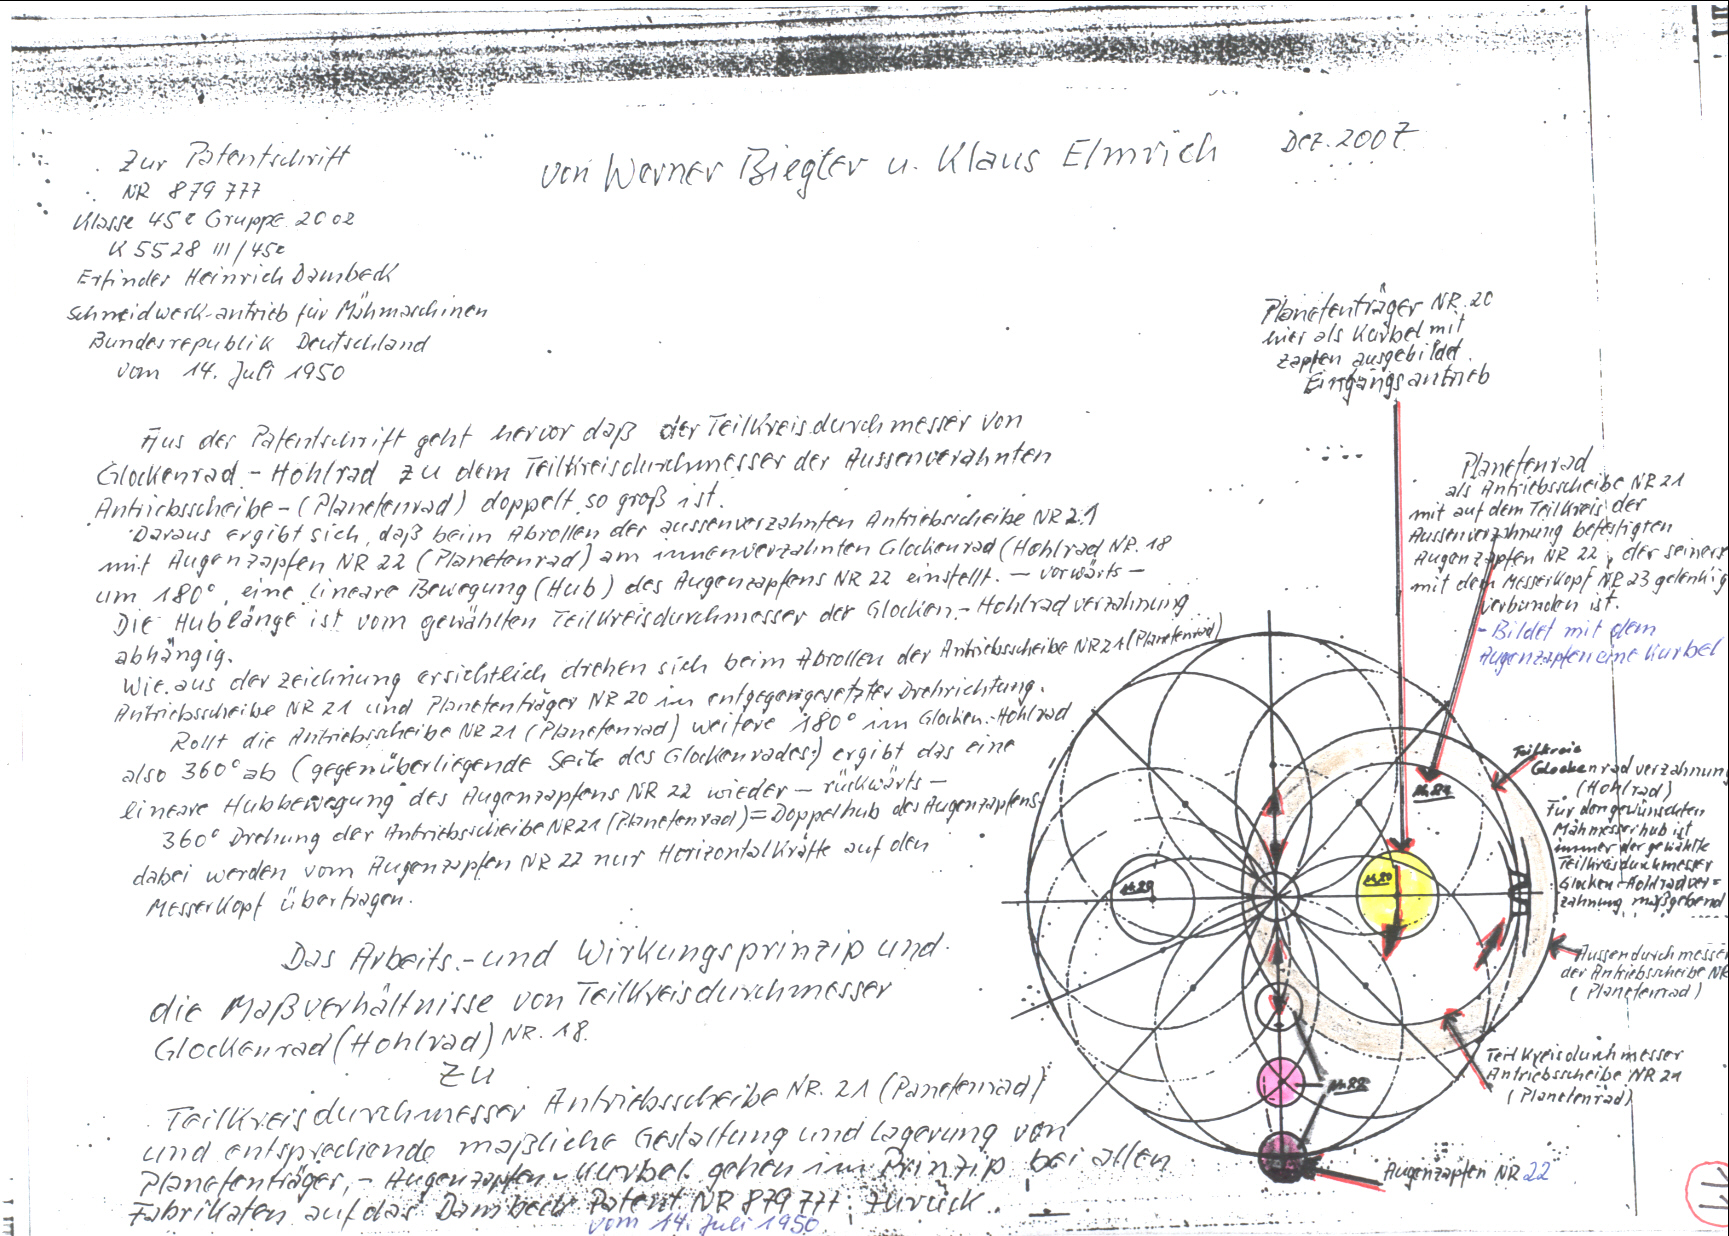 Zur Patentschrift
NR 879 777
Klasse 45c Gruppe 2002
K 5528 III/45c
Erfinder Heinrich Dambeck
Schneidwerk-antrieb für Mähmaschinen
Bundesrepublik Deutschland
vom 14. Juli 1950
von Werner Biegler u. Klaus Elmrich Dez. 2007
Aus der Patentschrift geht hervor daß der Teilkreisdurchmesser von
Glockenrad - Hohlrad zu dem Teilkreisdurchmesser der Aussenverzahnten
Antriebsscheibe - (Planetenrad) doppelt so groß ist.
Daraus ergibt sich, daß beim Abrollen der aussenverzahnten Antriebsscheibe NR 21
mit Augenzapfen NR 22 (Planetenrad) am innenverzahnten Glockenrad (Hohlrad NR. 18
um 180°, eine lineare Bewegung (Hub) des Augenzapfens NR 22 einstellt. - vorwärts -
Die Hublänge ist vom gewählten Teilkreisdurchmesser der Glocken - Hohlradverzahnung
abhängig.
Wie aus der Zeichnung ersichtlich drehen sich beim Abrollen der Antriebsscheibe NR 21 (Planetenrad)
Antriebsscheibe NR 21 und Planetenträger NR 20 in entgegengesetzter Drehrichtung.
Rollt die Antriebsscheibe NR 21 (Planetenrad) weitere 180° im Glocken - Hohlrad
also 360° ab (gegenüberliegende Seite des Glockenrades) ergibt das eine
lineare Hubbewegung des Augenzapfens NR 22 wieder - rückwärts -
360° Drehung der Antriebsscheibe NR 21 (Planetenrad) = Doppelhub des Augenzapfens,
dabei werden vom Augenzapfen NR 22 nur Horizontalkräfte auf den
Messerkopf übertragen.
Das Arbeits - und Wirkungsprinzip und
die Maßverhältnisse von Teilkreisdurchmesser
Glockenrad (Hohlrad) NR. 18.
zu
Teilkreisdurchmesser Antriebsscheibe NR. 21 (Panetenrad)
und entsprechende maßliche Gestaltung und Lagerung von
Planetenträger, - Augenzapfen - Kurbel gehen im Prinzip bei allen
Fabrikaten auf das Dambeck Patent NR 879 777 zurück.
vom 14. Juli 1950
Planetenträger NR. 20
hier als Kurbel mit
Zapfen ausgebildet.
Eingangsantrieb
Planetenrad
als Antriebsscheibe NR 21
mit auf dem Teilkreis der
Aussenverzahnung befestigten
Augenzapfen NR 22, der seiners
mit dem Messerkopf NR 23 gelenkig
verbunden ist.
- Bildet mit dem
Augenzapfen eine Kurbel
Teilkreis
Glockenradverzahnung
(Hohlrad)
Für den gewünschten
Mähmesserhub ist
immer der gewählte
Teilkreisdurchmesser
Glocken - Hohlradver=
zahnung maßgebend
NR 21
NR 20
NR 20
Aussendurchmesser
der Antriebsscheibe NR
(Planetenrad)
Teilkreisdurchmesser
Antriebsscheibe NR 21
(Planetenrad)
NR 22
Augenzapfen NR 22